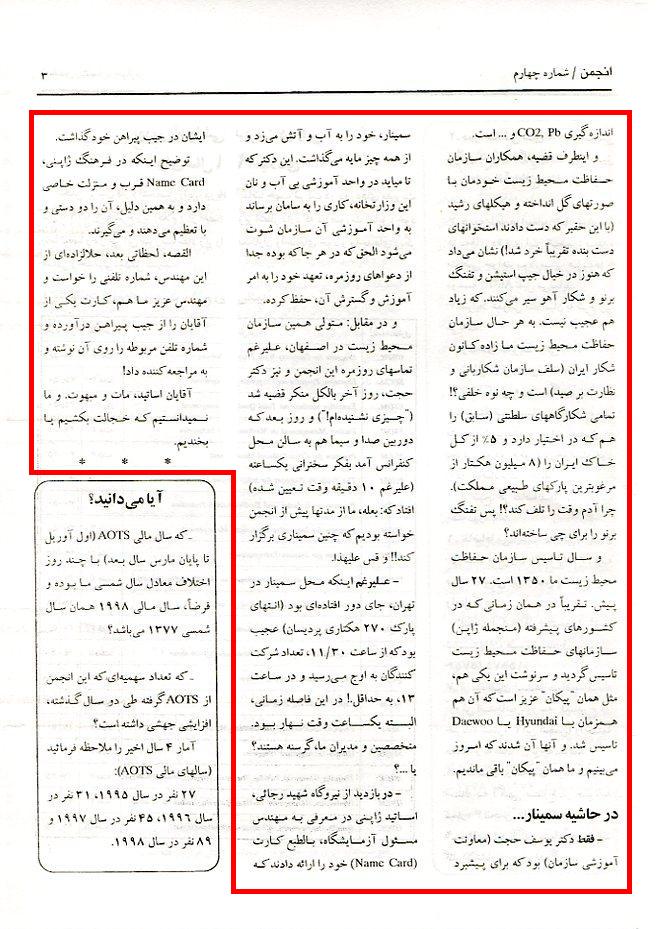 انجمن / شماره چهارم
۳
اندازه‌گیری CO2, Pb و ... است.
و اینطرف قضیه، همکاران سازمان
حفاظت محیط زیست خودمان با
صورتهای گل انداخته و هیکلهای رشید
(با این حقیر که دست دادند استخوانهای
دست بنده تقریباً خرد شد!) نشان می‌داد
که هنوز در خیال جیپ استیشن و تفنگ
برنو و شکار آهو سیر می‌کنند. که زیاد
هم عجیب نیست. به هر حال سازمان
حفاظت محیط زیست ما زاده کانون
شکار ایران (سلف سازمان شکاربانی و
نظارت بر صید) است و چه نوه خلفی؟!
تمامی شکارگاههای سلطنتی (سابق) را
هم که در اختیار دارد و ۵٪ از کل
خاک ایران را (۸ میلیون هکتار از
مرغوبترین پارکهای طبیعی مملکت).
چرا آدم وقت را تلف کند؟! پس تفنگ
برنو را برای چی ساخته‌اند؟
و سال تاسیس سازمان حفاظت
محیط زیست ما ۱۳۵۰ است. ۲۷ سال
پیش. تقریباً در همان زمانی که در
کشورهای پیشرفته (منجمله ژاپن)
سازمانهای حفاظت محیط زیست
تاسیس گردید و سرنوشت این یکی هم،
مثل همان "پیکان" عزیز است که آن هم
همزمان با Hyundai یا Daewoo
تاسیس شد. و آنها آن شدند که امروز
می‌بینیم و ما همان "پیکان" باقی ماندیم.
در حاشیه سمینار...
- فقط دکتر یوسف حجت (معاونت
آموزشی سازمان) بود که برای پیشبرد
سمینار، خود را به آب و آتش می‌زد و
از همه چیز مایه می‌گذاشت. این دکتر که
تا میاید در واحد آموزشی بی آب و نان
این وزارتخانه، کاری را به سامان برساند
به واحد آموزشی آن سازمان شوت
می‌شود الحق که در هر جا که بوده جدا
از دعواهای روزمره، تعهد خود را به امر
آموزش و گسترش آن، حفظ کرده.
و در مقابل: متولی همین سازمان
محیط زیست در اصفهان، علیرغم
تماسهای روزمره این انجمن و نیز دکتر
حجت، روز آخر بالکل منکر قضیه شد
("چیزی نشنیده‌ام!") و روز بعد که
دوربین صدا و سیما هم به سالن محل
کنفرانس آمد بفکر سخنرانی یکساعته
(علیرغم ۱۰ دقیقه وقت تعیین شده)
افتاد که: بعله، ما از مدتها پیش از انجمن
خواسته بودیم که چنین سمیناری برگزار
کند!! و قس علیهذا.
- علیرغم اینکه محل سمینار در
تهران، جای دور افتاده‌ای بود (انتهای
پارک ۲۷۰ هکتاری پردیسان) عجیب
بود که از ساعت ۱۱/۳۰، تعداد شرکت
کنندگان به اوج می‌رسید و در ساعت
۱۳، به حداقل.! در این فاصله زمانی،
البته یکساعت وقت نهار بود.
متخصصین و مدیران ما، گرسنه هستند؟
یا ...؟
- در بازدید از نیروگاه شهید رجائی،
اساتید ژاپنی در معرفی به مهندس
مسئول آزمایشگاه، بالطبع کارت
(Name Card) خود را ارائه دادند که
ایشان در جیب پیراهن خود گذاشت.
توضیح اینکه در فرهنگ ژاپنی،
Name Card قرب و منزلت خاصی
دارد و به همین دلیل، آن را دو دستی و
با تعظیم می‌دهند و می‌گیرند.
القصه، لحظاتی بعد، حلالزاده‌ای از
این مهندس، شماره تلفنی را خواست و
مهندس عزیز ما هم، کارت یکی از
آقایان را از جیب پیراهن درآورده و
شماره تلفن مربوطه را روی آن نوشته و
به مراجعه کننده داد!
آقایان اساتید، مات و مبهوت. و ما
نمیدانستیم که خجالت بکشیم یا
بخندیم.
* * *
آیا می‌دانید؟
ـ که سال مالی AOTS (اول آوریل
تا پایان مارس سال بعد) با چند روز
اختلاف معادل سال شمسی ما بوده و
فرضاً، سال مالی ۱۹۹۸ همان سال
شمسی ۱۳۷۷ می‌باشد؟
ـ که تعداد سهمیه‌ای که این انجمن
از AOTS گرفته طی دو سال گذشته،
افزایشی جهشی داشته است؟
آمار ۴ سال اخیر را ملاحظه فرمائید
(سالهای مالی AOTS):
۲۷ نفر در سال ۱۹۹۵، ۳۱ نفر در
سال ۱۹۹۶، ۴۵ نفر در سال ۱۹۹۷ و
۸۹ نفر در سال ۱۹۹۸.